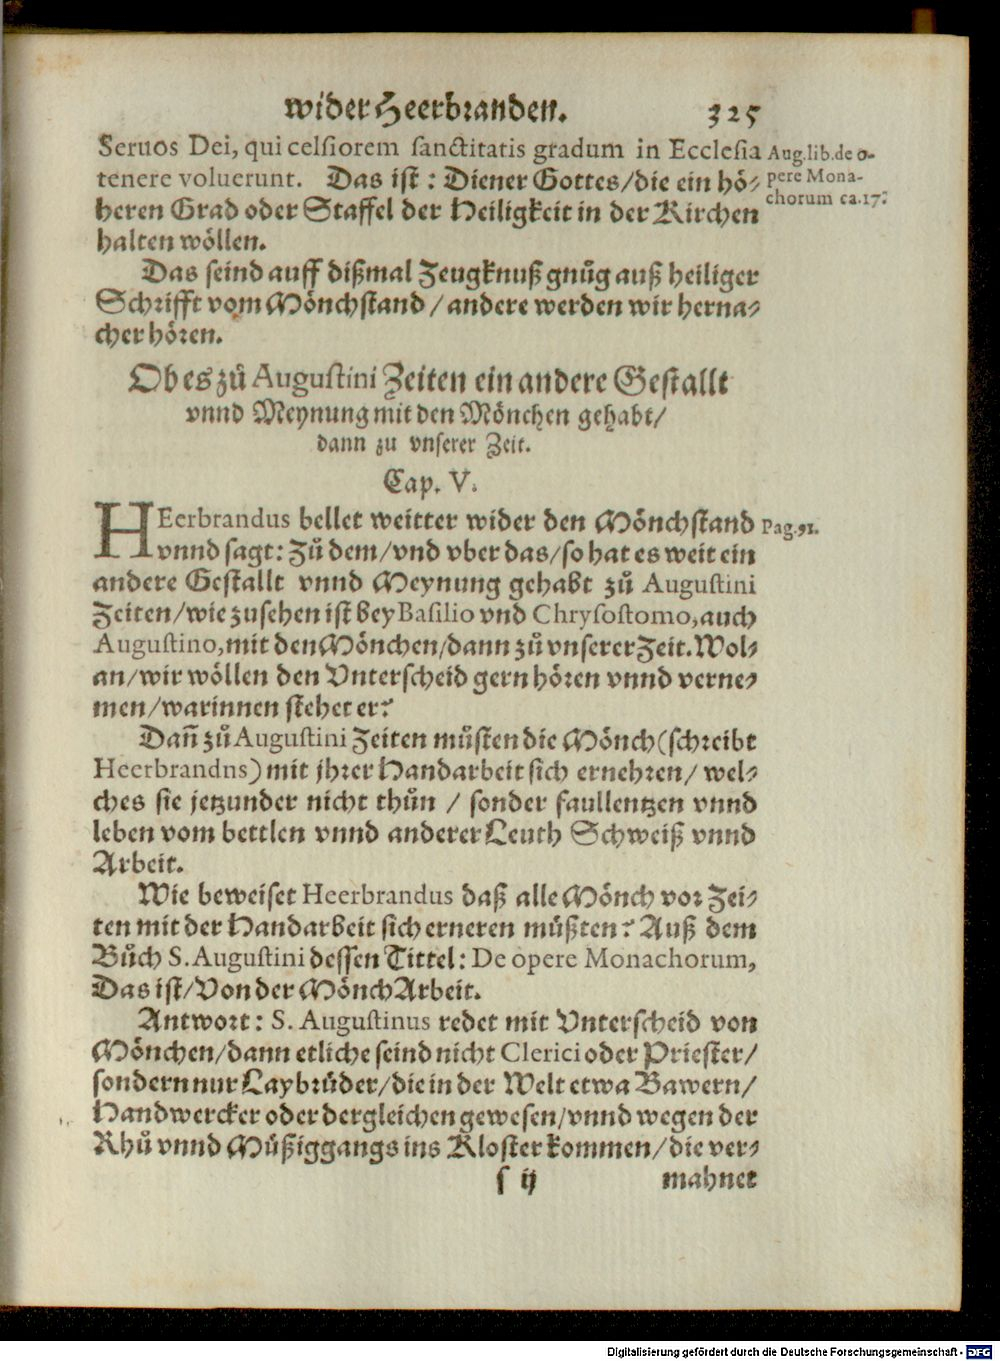 wider Heerbranden. 325
Seruos Dei, qui celsiorem sanctitatis gradum in Ecclesia
Aug.lib.de o-
tenere voluerunt. Das ist: Diener Gottes/die ein hö-
pere Mona-
heren Grad oder Staffel der Heiligkeit in der Kirchen
chorum ca.17.
halten wöllen.
Das seind auff dißmal Zeugknuß gnůg auß heiliger
Schrifft vom Mönchstand / andere werden wir herna-
cher hören.
Ob es zů Augustini Zeiten ein andere Gestallt
vnnd Meynung mit den Mönchen gehabt/
dann zu vnserer Zeit.
Cap. V.
HEerbrandus bellet weitter wider den Mönchstand
Pag.91.
vnnd sagt: Zů dem/vnd vber das/so hat es weit ein
andere Gestallt vnnd Meynung gehabt zů Augustini
Zeiten/wie zusehen ist bey Basilio vnd Chrysostomo, auch
Augustino, mit den Mönchen/dann zů vnserer Zeit. Wol-
an/wir wöllen den Vnterscheid gern hören vnnd verne-
men/warinnen stehet er?
Dañ zů Augustini Zeiten můsten die Mönch (schreibt
Heerbrandns) mit jhrer Handarbeit sich ernehren/ wel-
ches sie jetzunder nicht thůn / sonder faullentzen vnnd
leben vom bettlen vnnd anderer Leuth Schweiß vnnd
Arbeit.
Wie beweiset Heerbrandus daß alle Mönch vor Zei-
ten mit der Handarbeit sich erneren müßten? Auß dem
Bůch S. Augustini dessen Tittel: De opere Monachorum,
Das ist/Von der Mönch Arbeit.
Antwort: S. Augustinus redet mit Vnterscheid von
Mönchen/dann etliche seind nicht Clerici oder Priester/
sondern nur Laybrůder/die in der Welt etwa Bawern/
Handwercker oder dergleichen gewesen/vnnd wegen der
Rhů vnnd Můßiggangs ins Kloster kommen/die ver-
s ij mahnet
Digitalisierung gefördert durch die Deutsche Forschungsgemeinschaft - DFG